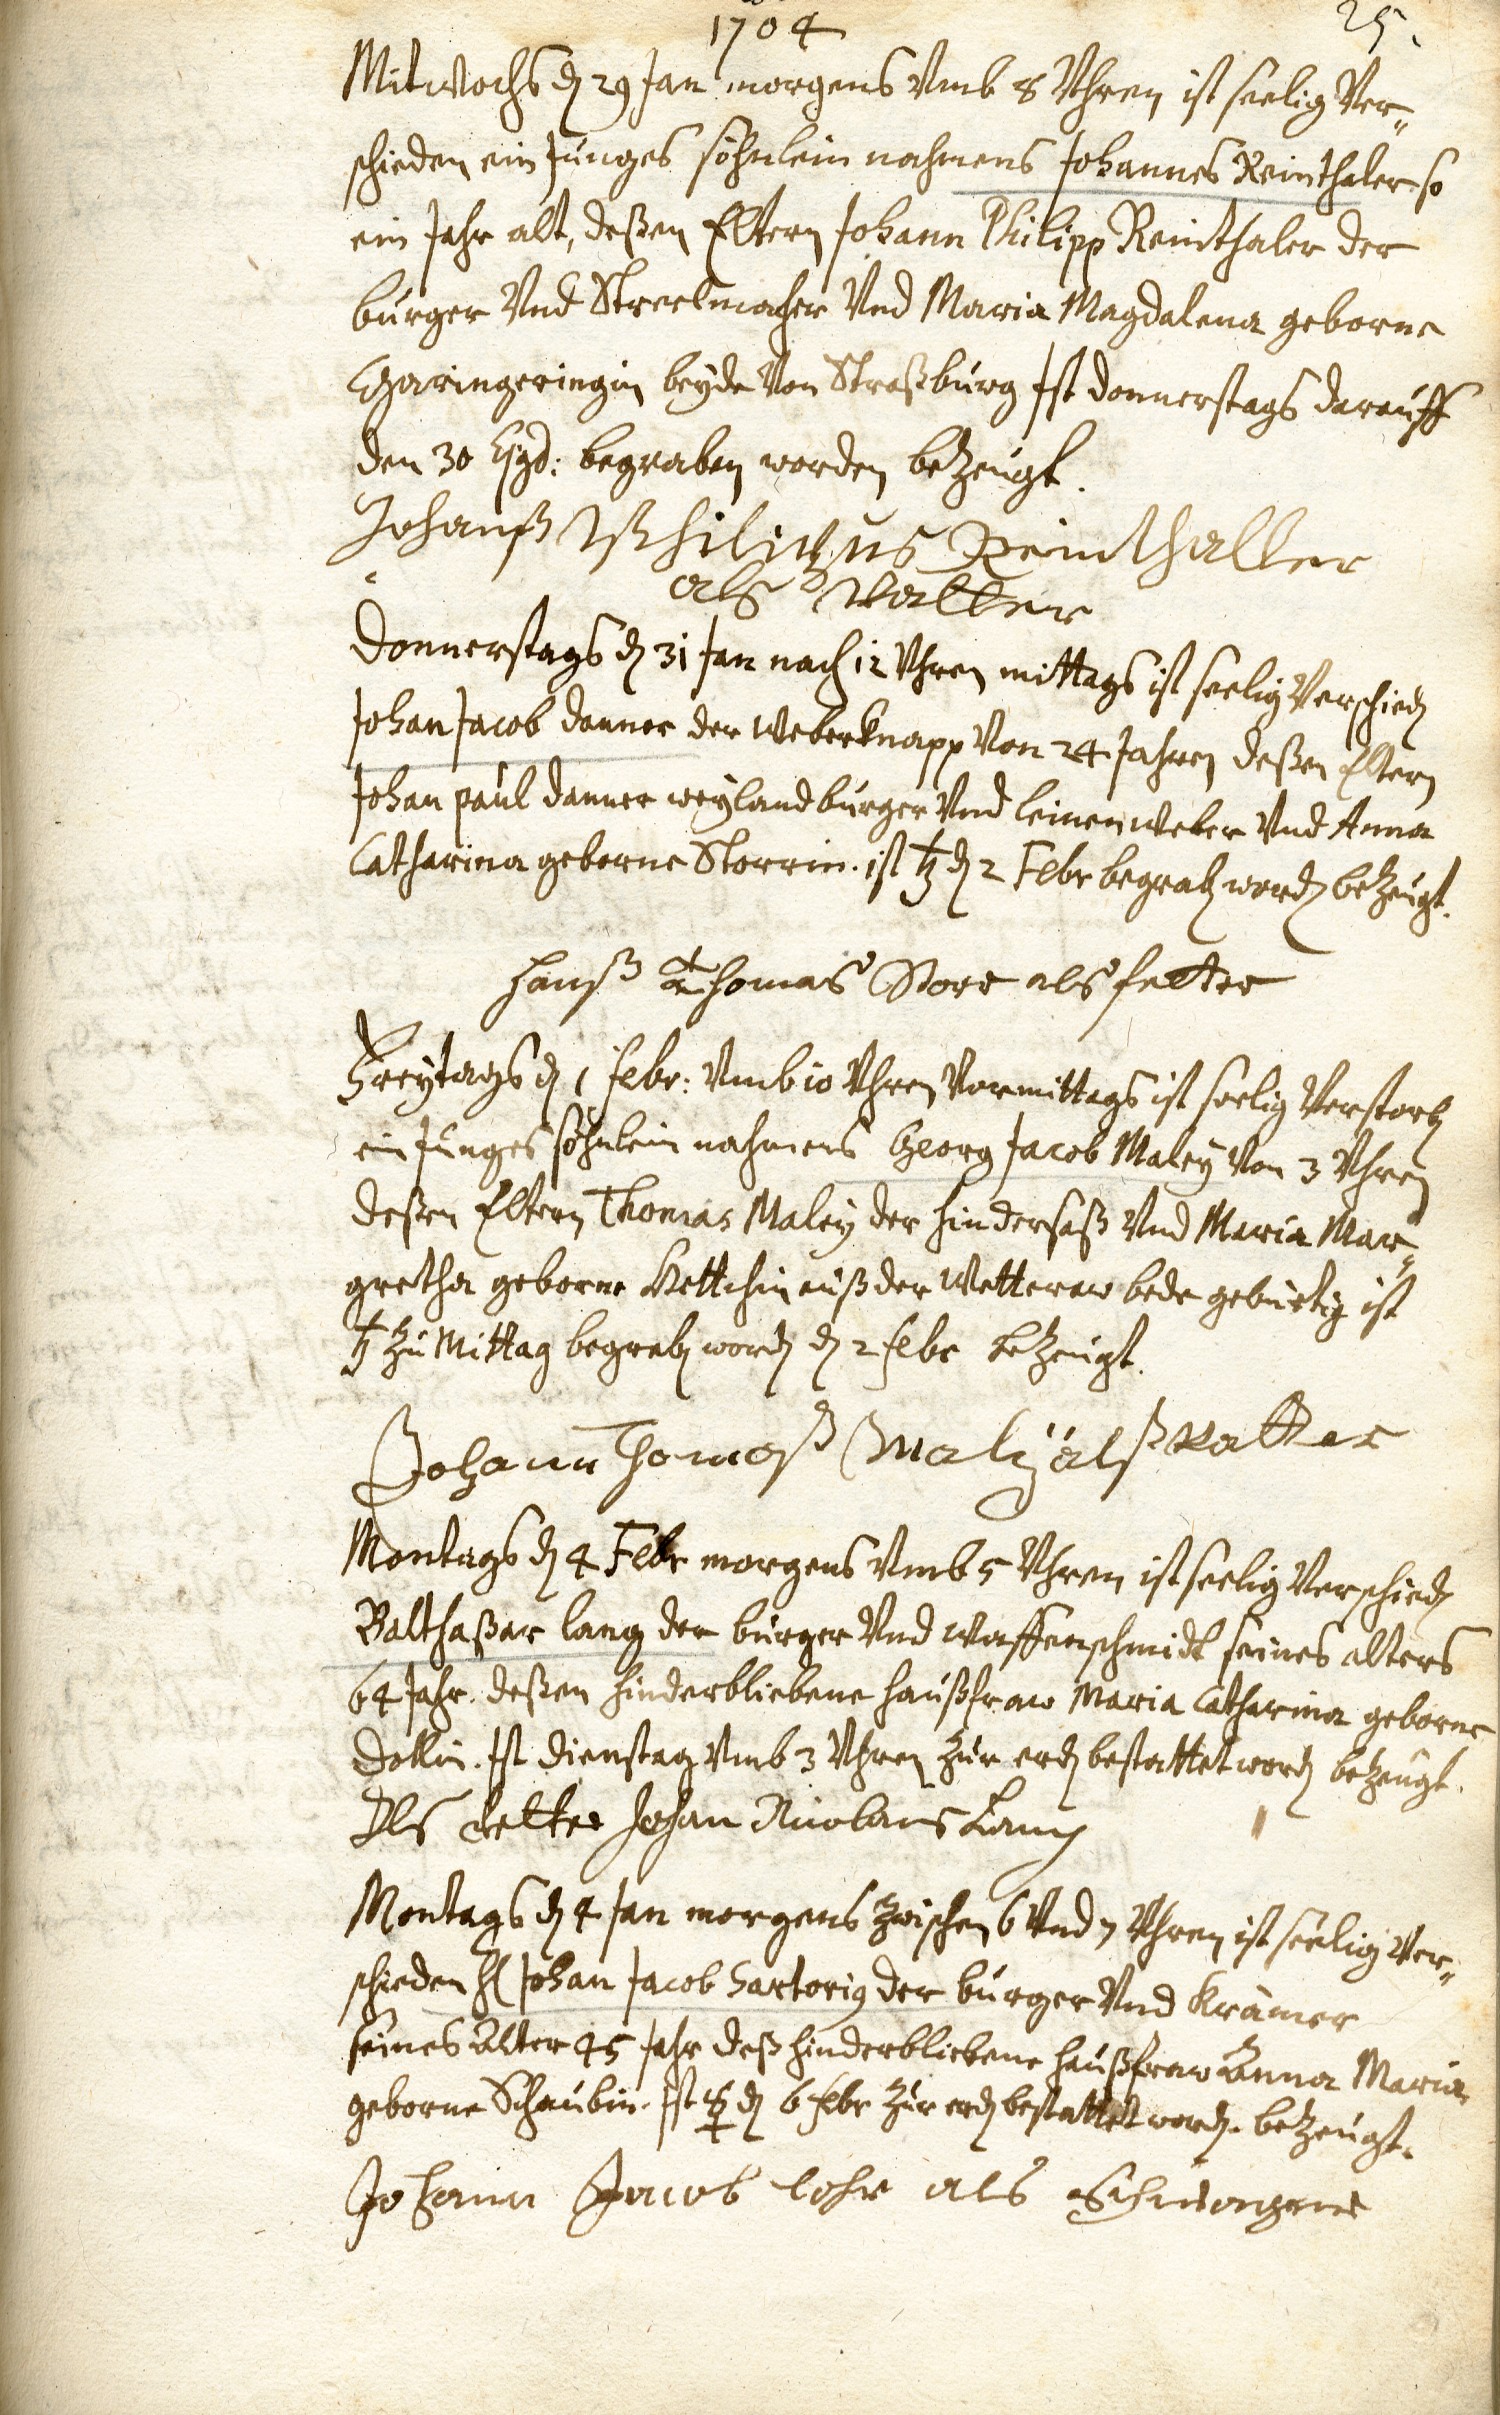 1704
25.
Mitwochs dn 29 Jan morgens Vmb 8 Vhren ist seelig Ver„
schieden ein Junges söhnlein nahmens Johannes Reinthaler so
ein Jahr alt, deßen Eltern Johann Philipp Reinthaler der
burger Vnd Streelmacher Vnd Maria Magdalena geborne
beyde Von Straßburg Ist donnerstags darauff
den 30 begraben worden bezeugt.
Johanß Philippus Reinthaller
als Vatter
Donnerstags dn 31 Jan nach 12 Vhren mittags ist seelig Verschiedn
Johan Jacob danner der Weberknapp Von 24 Jahren deßen Eltern
Johan paul danner weyland burger Vnd leinenweber Vnd Anna
Catharina geborne Storrin. ist ♄ dn 2 Febr begrabn wordn bezeugt.
Hanß Thomas Storr als fetter
Freytags dn 1 febr: Vmb 10 Vhren Vormittags ist seelig Verstorbn
ein Junges söhnlein nahmens Georg Jacob Maley Von 3 Vhren
deßen Eltern Thomas Maley der hindersaß Vnd Maria Mar„
gretha geborne auß der Wetteraw bede gebürtig ist
♄ zu Mittag begrabn wordn dn 2 febr bezeugt.
Johann Thomaß Maly alß Vatter
Montags dn 4 Febr morgens Vmb 5 Vhren ist seelig Verschiedn
Balthaßar lang der burger Vnd Waffenschmidt seines alters
64 Jahr. deßen hinderbliebene haußfraw Maria Catharina geborne
Ist dienstag Vmb 3 Vhren zur erdn bestattet wordn bezeugt.
Als fetter Johan Nicolaus Lang
Montags dn 4 Jan morgens zwischen 6 Vnd 7 Vhren ist seelig Ver„
schieden H Johan Jacob Sartorig der burger Vnd Krämer
seines Alter 45 Jahr deß hinderbliebene haußfraw Anna Maria
geborne Schaubin. Ist ☿ dn 6 febr zur erdn bestattet wordn. bezeugt.
Johann Jacob lohr als Schwager